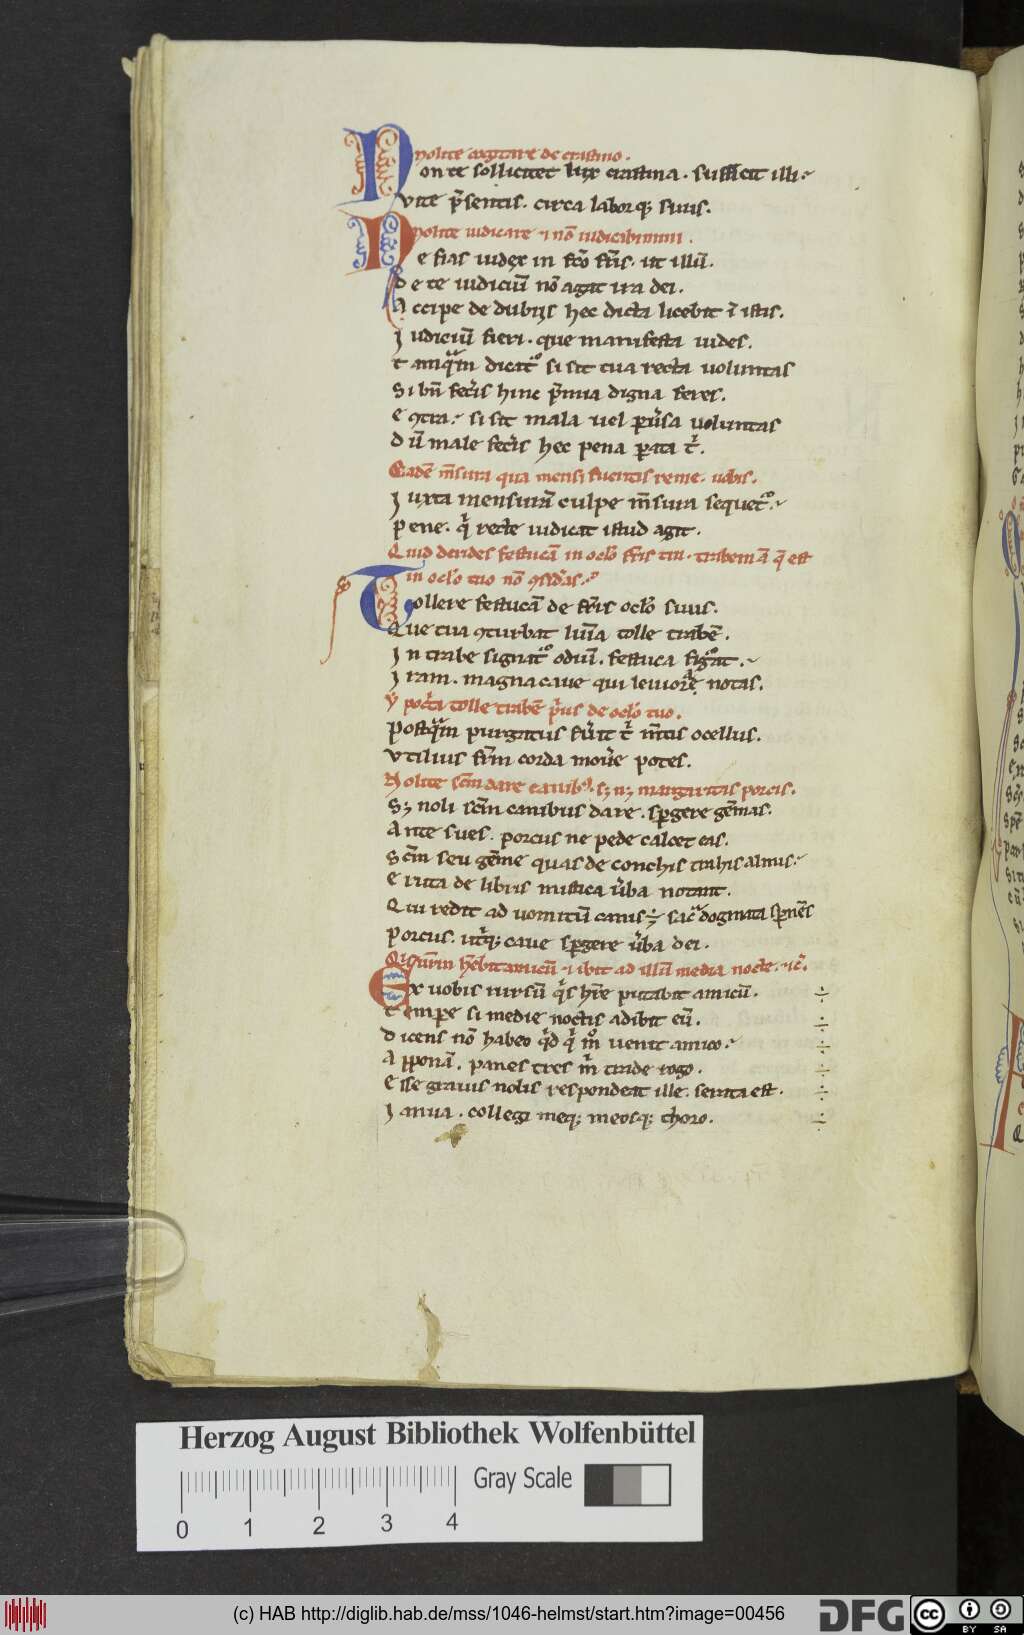 Nolite cogitare de crastino.
Non te sollicitet lux crastina. sufficit illi.
Vite p̄sentis. circa laborq; suus.
Nolite iudicare ⁊ nō iudicabimini.
Ne fias iudex in fc̄o fr̄is. ut illū.
De te iudiciū nō agat ira dei.
Accipe de dubijs hec dicta licebit ī istis.
Judiciū fieri. que manifesta uides.
Tamqᵃm dicatᵒ si sit tua recta uoluntas
Si bn̄ fec̄is hinc p̄mia digna feres.
E ꝯtra. si sit mala uel pu̅sa uoluntas
Dū male fec̄is hec pena ꝑata t̄.
Eadē m̄sura qua mensi fueritis reme. uobis.
Juxta mensurā culpe m̄sura sequetᵒ.
Pene. qⁱ recte iudicat istud agit.
Quid uides festucā in oc̄lo fr̄is tui. trabem ā q̄ est
in oc̄lo tuo nō ꝯsid̄as.
Tollere festucā de fr̄is oc̄lo suus.
Que tua ꝯturbat lumīa tolle trabē.
Jn trabe signatᵒ odiū. festuca figᵒat.
Jram. magna caue qui leuiorē notas.
Tolle trabē p̄us de oc̄lo tuo.
Postqᵃm purgatus fu̅it t̄ m̄tis ocellus.
Vtilius fr̄m corda mou̅e potes.
Nolite sc̄m dare canibꝰ. sꝫ nꝫ margaritas porcis.
Sꝫ noli sc̄m canibus dare. spgere gēmas.
Ante sues. porcus ne pede calcet eas.
Sc̄m seu gēme quas de conchis trahis almus.
Eruta de libris mistica u̅ba notant.
Qui redit ad uomitū canis ÷ sacᵃ dogmata spnēs
Porcus. utq; caue spgere u̅ba dei.
Qis ur̄m hēbit amicū ⁊ ibit ad illū media nocte. ⁊c̄.
Ex uobis rursū qⁱs hr̄e putabit amicū.
Tempe si medie noctis adibit eū.
Dicens nō habeo qⁱd qⁱ mᵒ uenit amico.
Apponā. panes tres mⁱ trade rogo.
Esse grauis nobis respondeat ille. serata est.
Janua. collegi meq; meosq; thoro.
Herzog August Bibliothek Wolfenbüttel
Gray Scale
0 1 2 3 4
(c) HAB http://diglib.hab.de/mss/1046-helmst/start.htm?image=00456
DFG
cc BY SA